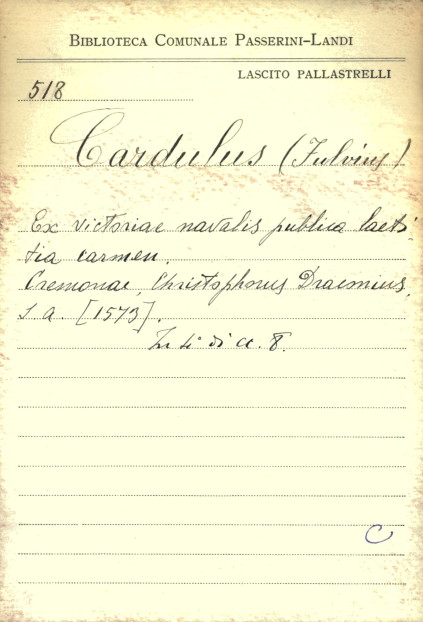 BIBLIOTECA COMUNALE PASSERINI-LANDI
LASCITO PALLASTRELLI
518
Cardulus (Fulvius)
Ex victoriae navalis publica laeti-
tia carmen.
Cremonae, Christophorus Draconius,
s. a. [1573].
In 4° di cc. 8.
C